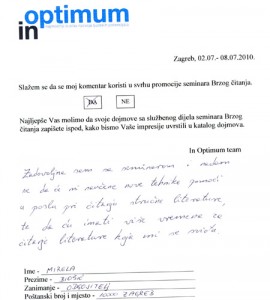 optimum
in
Zagreb, 02.07.- 08.07.2010.
Slažem se da se moj komentar koristi u svrhu promocije seminara Brzog čitanja.
DA NE
Najljepše Vas molimo da svoje dojmove sa službenog dijela seminara Brzog
čitanja zapišete ispod, kako bismo Vaše impresije uvrstili u katalog dojmova.
In Optimum team
Zadovoljna sam sa seminarom i nadam
se da će mi naučene nove tehnike pomoći
u poslu pri čitanju stručne literature,
te da ću imati više vremena za
čitanje literature koja mi se sviđa
Ime - MIRELA
Prezime -
Zanimanje - ODGOJITELJ
Poštanski broj i mjesto - 10000 ZAGREB